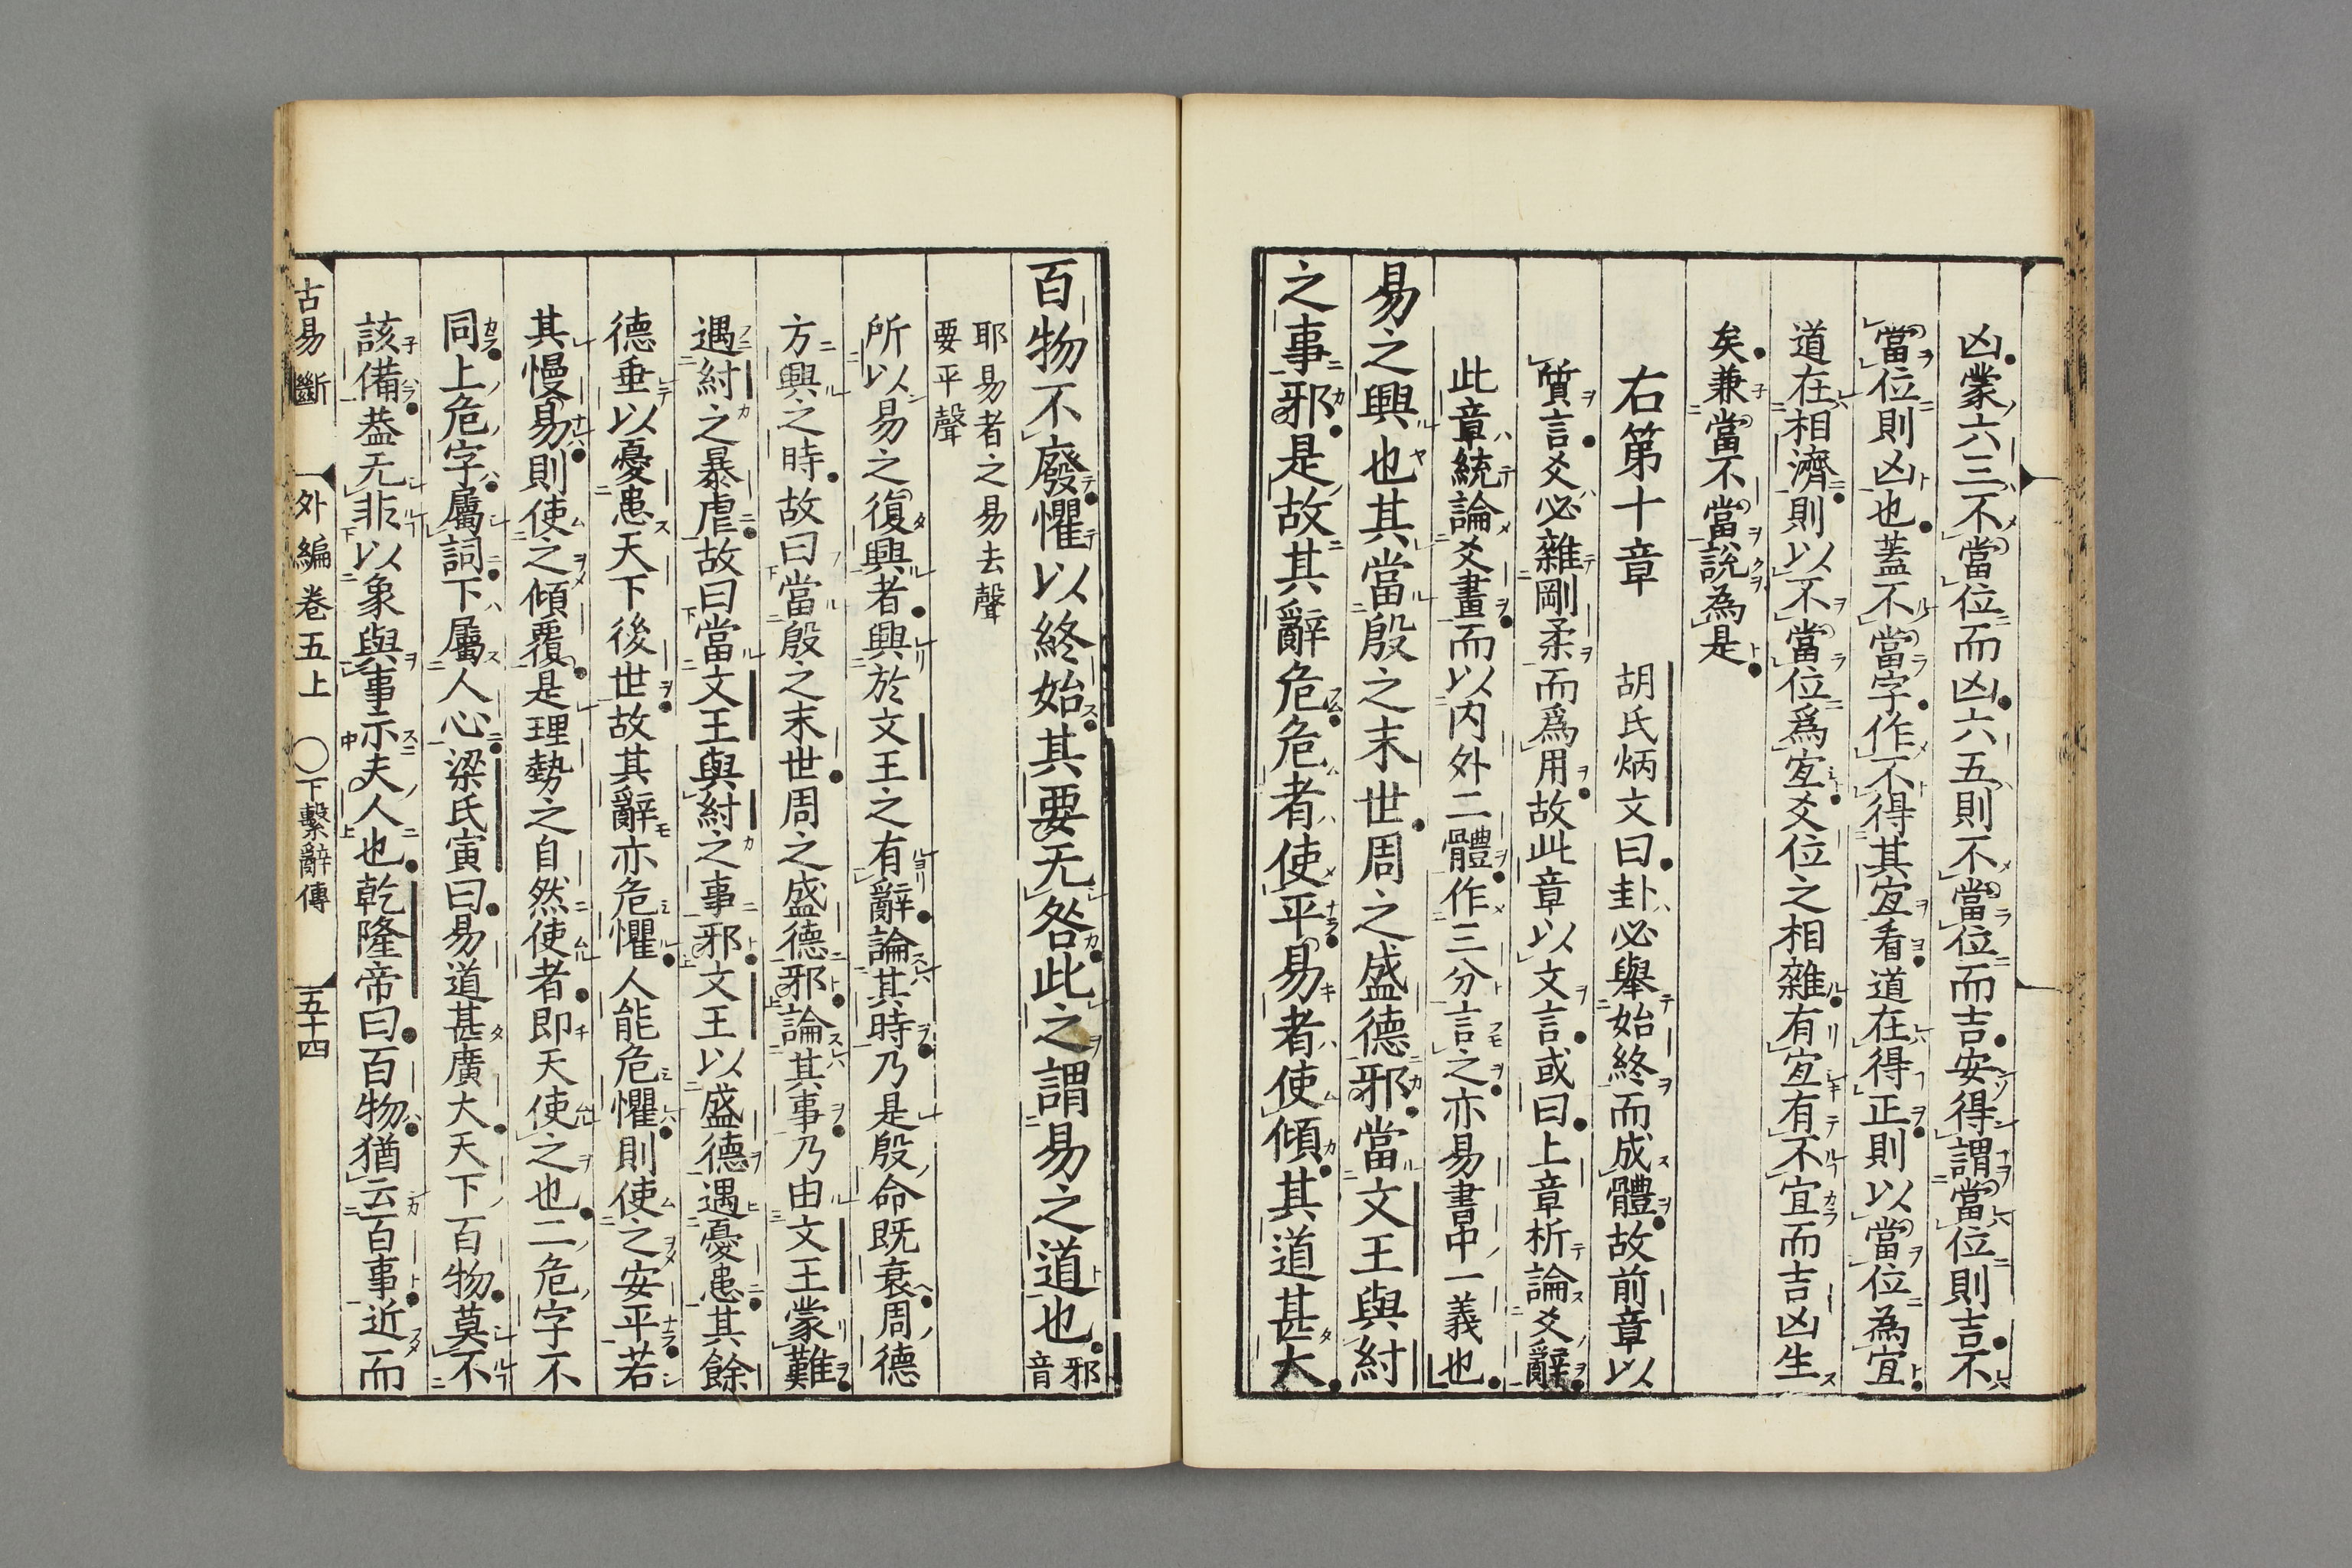 凶蒙六三不當位而凶六五則不當位而吉安得謂當位則吉不
當位則凶也蓋不當字作不得其宜看道在得正則以當位為宜
道在相濟則以不當位爲宜爻位之相雜有宜有不宜而吉凶生
矣兼當不當說為是
右第十章　胡氏炳文曰卦必舉始終而成體故前章以
質言爻必雜剛柔而爲用故此章以文言或曰上章析論爻辭
此章統論爻畫而以内外二體作三分言之亦易書中一義也
易之興也其當殷之末世周之盛德邪當文王與紂
之事邪是故其辭危危者使平易者使傾其道甚大
百物不廢懼以終始其要无咎此之謂易之道也邪音
耶易者之易去聲
要平聲
所以易之復興者興於文王之有辭論其時乃是殷命既衰周德
方興之時故曰當殷之末世周之盛德邪論其事乃由文王蒙難
遇紂之暴虐故曰當文王與紂之事邪文王以盛德遇憂患其餘
德垂以憂患天下後世故其辭亦危懼人能危懼則使之安平若
其慢易則使之傾覆是理勢之自然使者即天使之也二危字不
同上危字屬詞下屬人心梁氏寅曰易道甚廣大天下百物莫不
該備葢无非以象與事示夫人也乾隆帝曰百物猶云百事近而
古易斷　外編卷五上　〇下繫辭傳　五十四